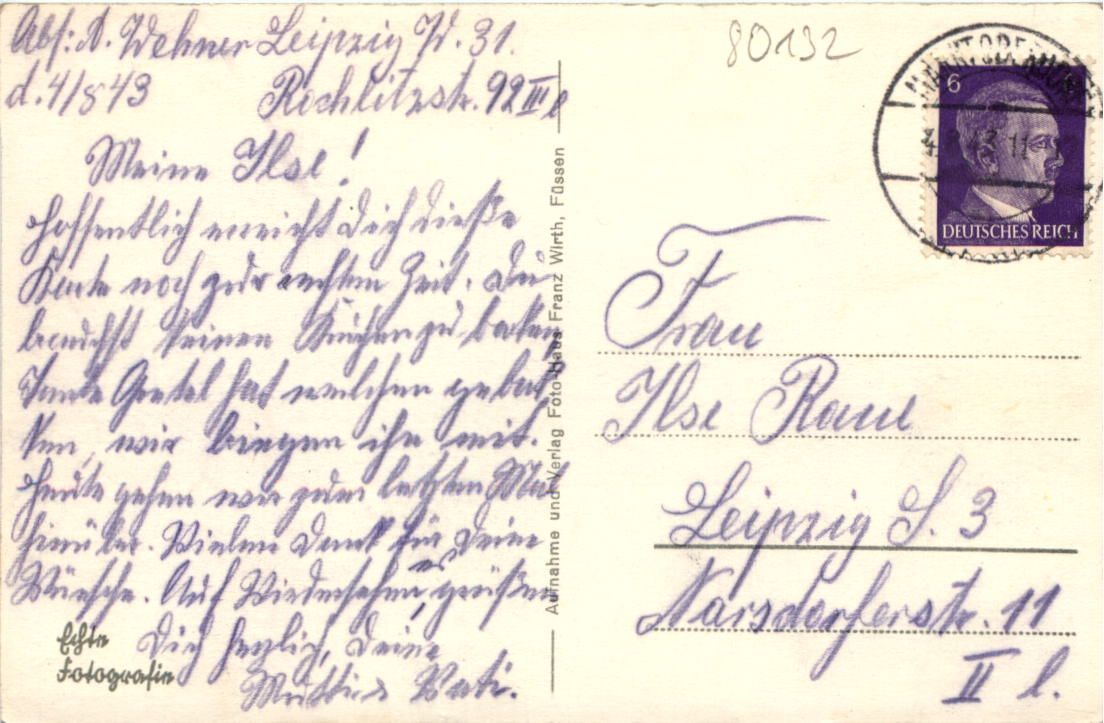 Abs: A. Wehner Leipzig W. 31.
d. 4/8 43 Rochlitzstr. 92 III l
Meine Ilse!
Hoffentlich erreicht Dich dieße
Karte noch zur rechten Zeit. Du
brauchst keinen Kuchen zu backen
Tante Gretel hat welchen geback
ken, wir bringen ihn mit.
Heute gehen wir zum letzten Mal
hinüber. Vielen Dank für Deine
Wünsche. Auf Wiedersehen, es grüßen
Dich herzlich, Deine
Mutti u Vati.
Echte
Fotografie
Aufnahme und Verlag Foto-Haus Franz Wirth, Füssen
80132
6
DEUTSCHES REICH
Frau
Ilse Raue
Leipzig S. 3
Narsdorferstr. 11
II l.